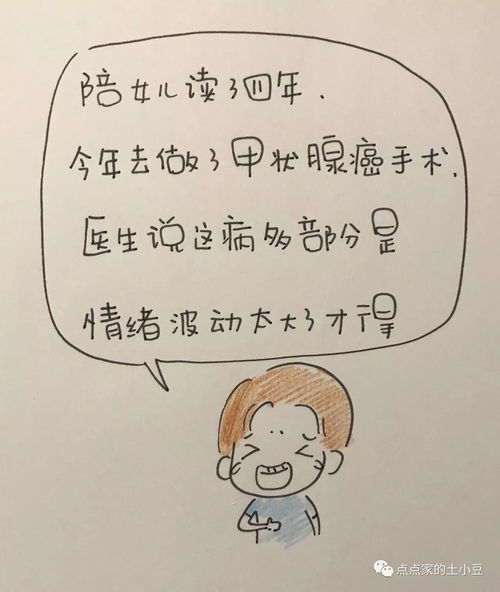 陪女儿读了四年.
今年去做了甲状腺癌手术.
医生说这病多部分是
情绪波动太大了才得
点点家的土小豆